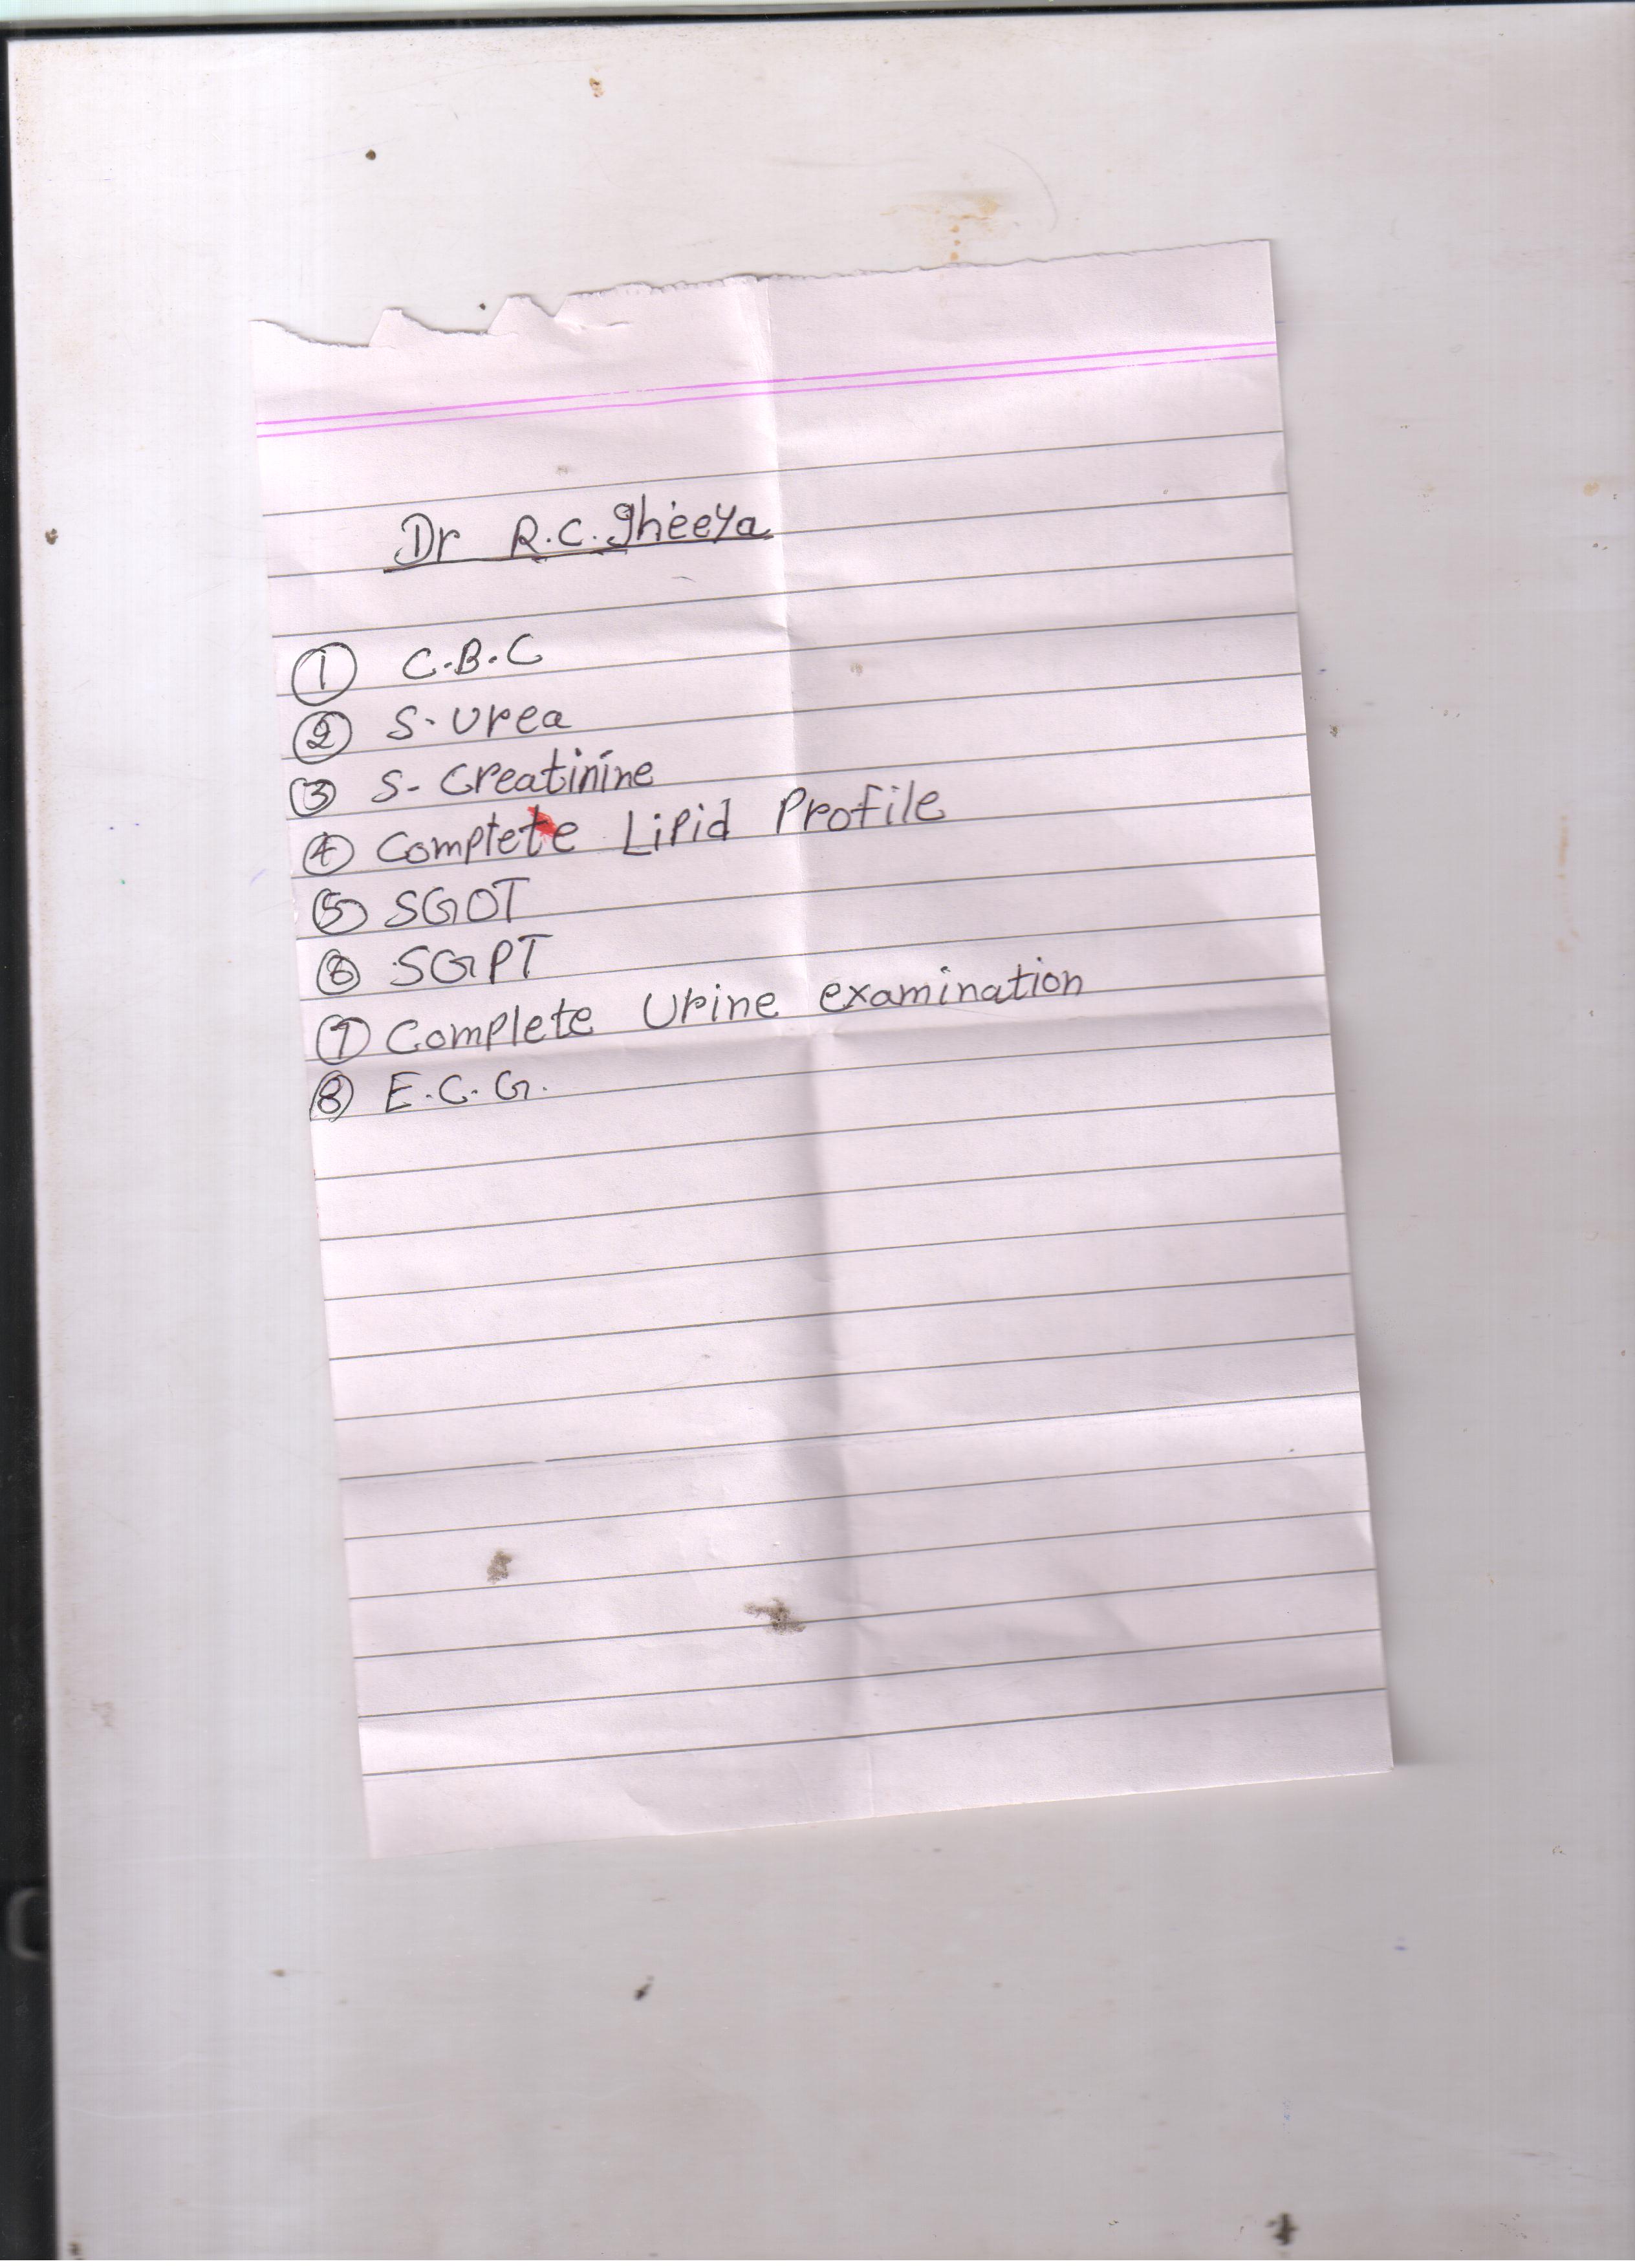 Dr R.C. Gheeya
① C.B.C
② S. Urea
③ S- Creatinine
④ Complete Lipid Profile
⑤ SGOT
⑥ SGPT
⑦ Complete Urine examination
⑧ E.C.G.